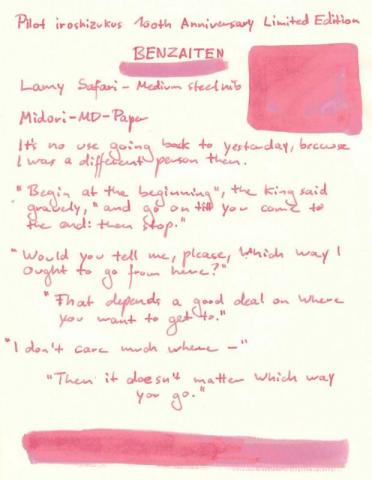 Pilot iroshizukus 100th Anniversary Limited Edition
BENZAITEN
Lamy Safari - Medium steel nib
Midori-MD-Paper
It's no use going back to yesterday, because
I was a different person then.
"Begin at the beginning", the King said
gravely, "and go on till you come to
the end: then stop."
"Would you tell me, please, which way I
ought to go from here?"
"That depends a good deal on where
you want to get to."
"I don't care much where –"
"Then it doesn't matter which way
you go."